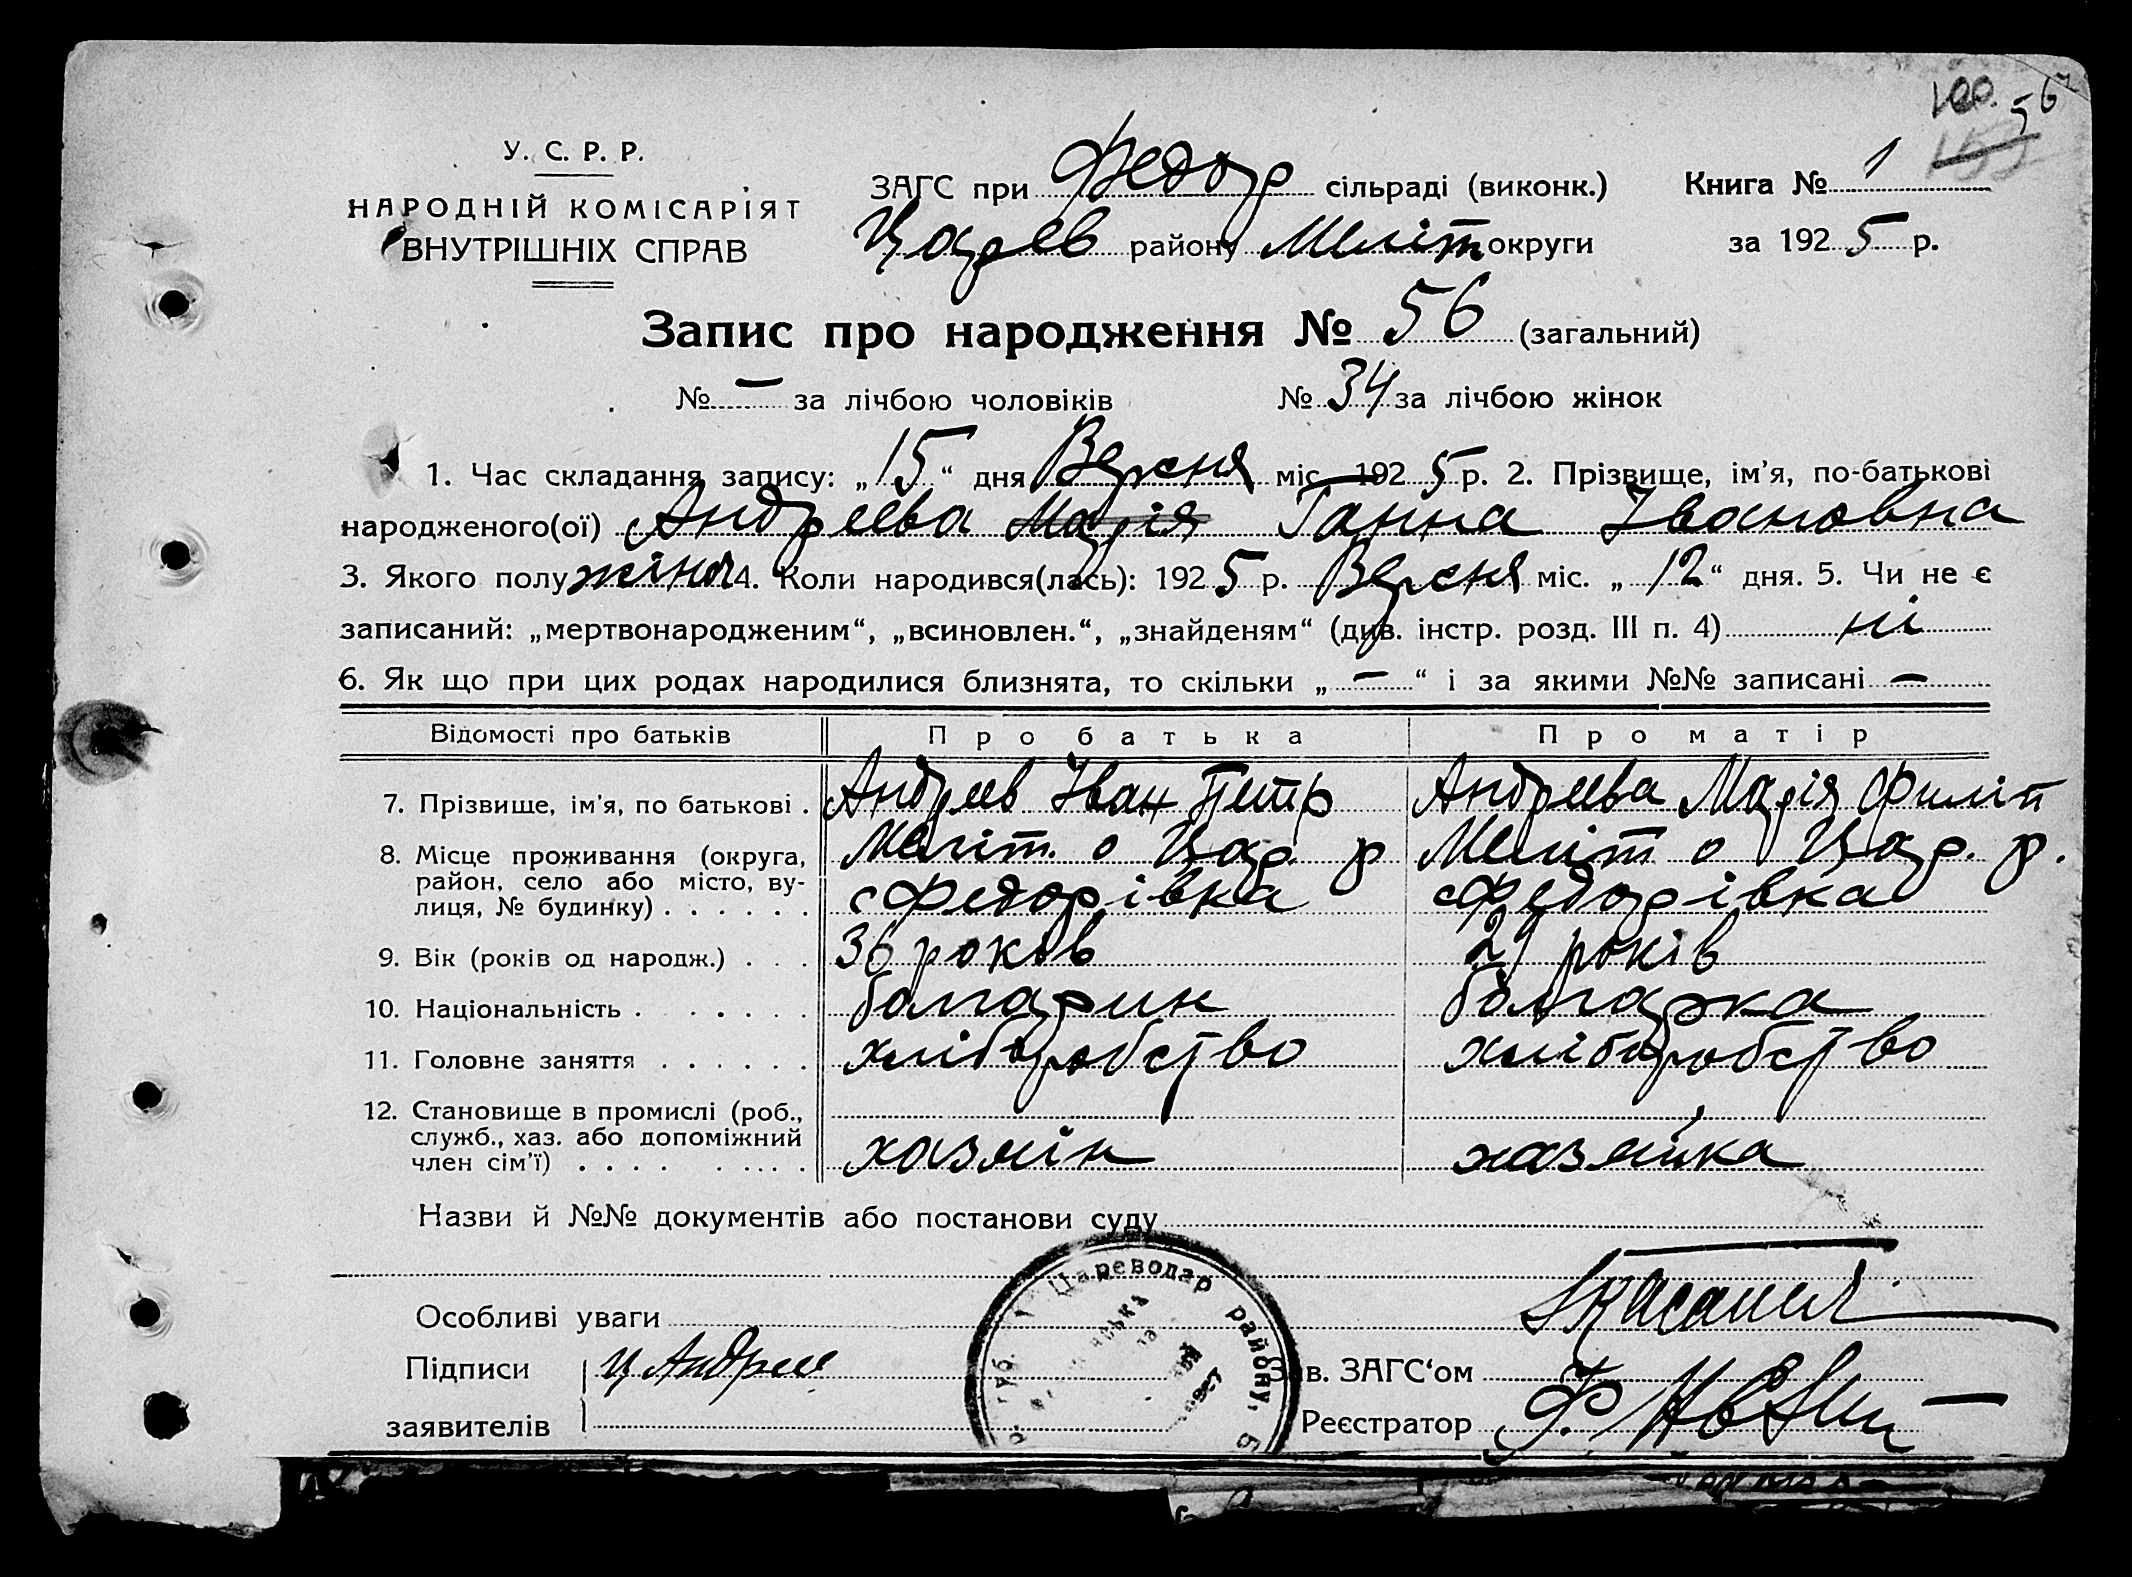 100. 56
У. С. Р. Р.
НАРОДНІЙ КОМІСАРІЯТ
ВНУТРІШНІХ СПРАВ
ЗАГС при Федор сільраді (виконк.) Книга № 1
Царев району Меліт округи за 1925 р.
Запис про народження № 56 (загальний)
№ — за лічбою чоловіків № 34 за лічбою жінок
1. Час складання запису: „15“ дня Версня міс. 1925 р. 2. Прізвище, ім'я, по-батькові
народженого(ої) Андреева Марія Ганна Івановна
3. Якого полу жіноч 4. Коли народився(лась): 1925 р. Версня міс. „12“ дня. 5. Чи не є
записаний: „мертвонародженим“, „всиновлен.“, „знайденям“ (див. інстр. розд. III п. 4) ні
6. Як що при цих родах народилися близнята, то скільки „—“ і за якими №№ записані —
Відомості про батьків Про батька Про матір
7. Прізвище, ім'я, по батькові . Андреев Іван Петр Андреева Марія Филіп
8. Місце проживання (округа, Меліт. о Цар. р Меліт о Цар. р.
район, село або місто, ву-
лиця, № будинку) . . . . . . с Федорівка с Федорівка
9. Вік (років од народж.) . . . 36 років 29 років
10. Національність . . . . . . . болгарин болгарка
11. Головне заняття . . . . . . хліборобство хліборобство
12. Становище в промислі (роб.,
служб., хаз. або допоміжний
член сім'ї) . . . . . . . . . хазяін хазяйка
Назви й №№ документів або постанови суду
Цареводар району,
Особливі уваги
Підписи Андрее Зав. ЗАГС‘ом
заявителів Реєстратор